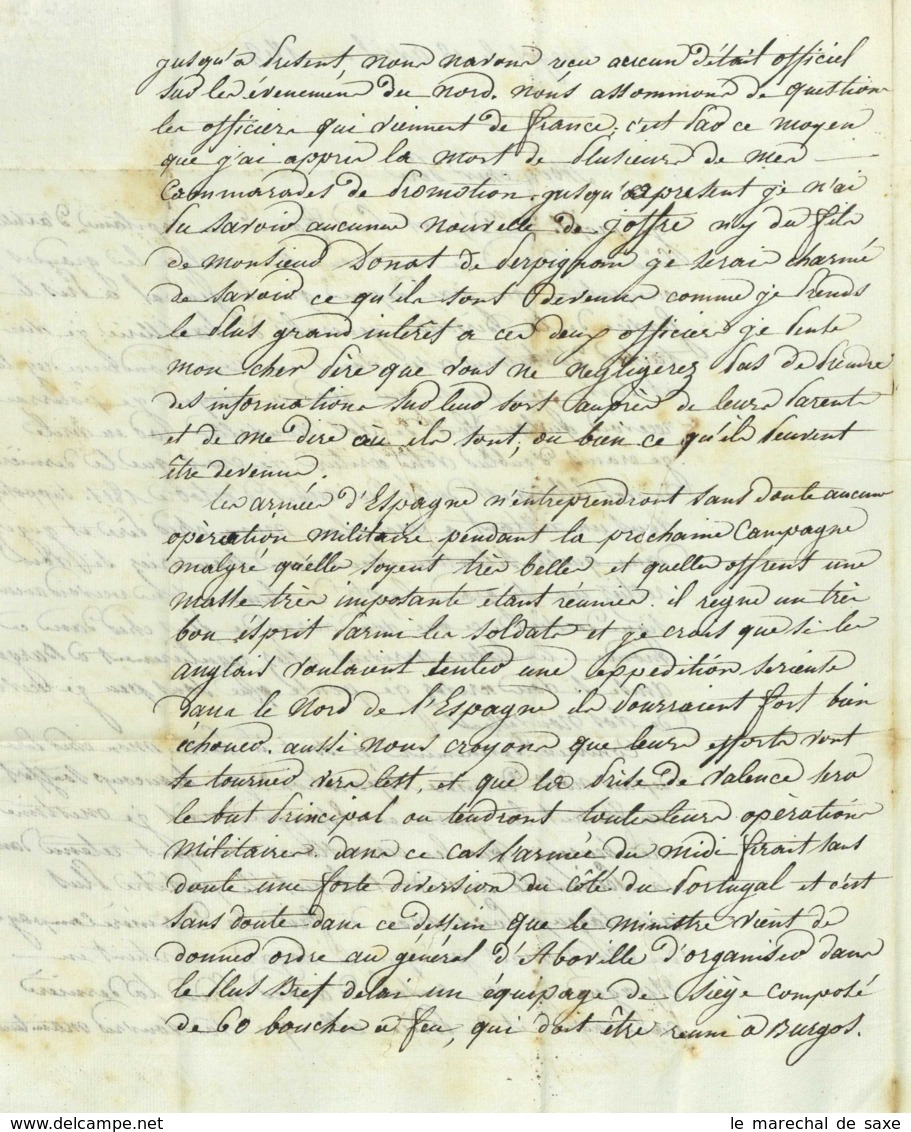 jusqu'a present, nous navons reçu aucun détail officiel
sur les évenemens du nord. nous assommons de questions
les officiers qui viennent de france; c'est par ce moyen
que j'ai appris la mort de plusieurs de mes
Cammarades de promotion. jusqu'apresent je n'ai
pu savoir aucunes nouvelle de joffre n'y du fils
de monsieur Donat de perpignan je serai charmé
de savoir ce qu'ils sont devenus comme je prends
le plus grand interêt a ces deux officiers je pense
mon cher père que vous ne negligerez pas de prendre
des informations sur leur sort auprès de leurs parents
et de me dire où ils sont, ou bien ce qu'ils peuvent
être devenus.
les armées d'Espagne n'entreprendront sans doute aucune
opèration militaire pendant la prochaine Campagne
malgré quelles soyent très belles et quelles offrent une
masse très imposante étant réunies. il regne un très
bon ésprit parmi les soldats et je crois que si les
anglais voulaient tenter une expedition serieuse
dans le Nord de l'Espagne ils pourraient fort bien
échouer. aussi nous croyons que leurs efforts vont
se tourner vers lest, et que la prise de valence sera
le but principal ou tendront toutes leurs opèrations
militaires. dans ce cas l'armée du midi ferait sans
doute une forte diversion du côté du Portugal et c'est
sans doute dans ce dessein que le ministre vient de
donner ordre au général d'Aboville d'organiser dans
le plus Bref delai un équipage de siège composé
de 60 bouches a feu, qui doit être reuni a Burgos.
le marechal de saxe